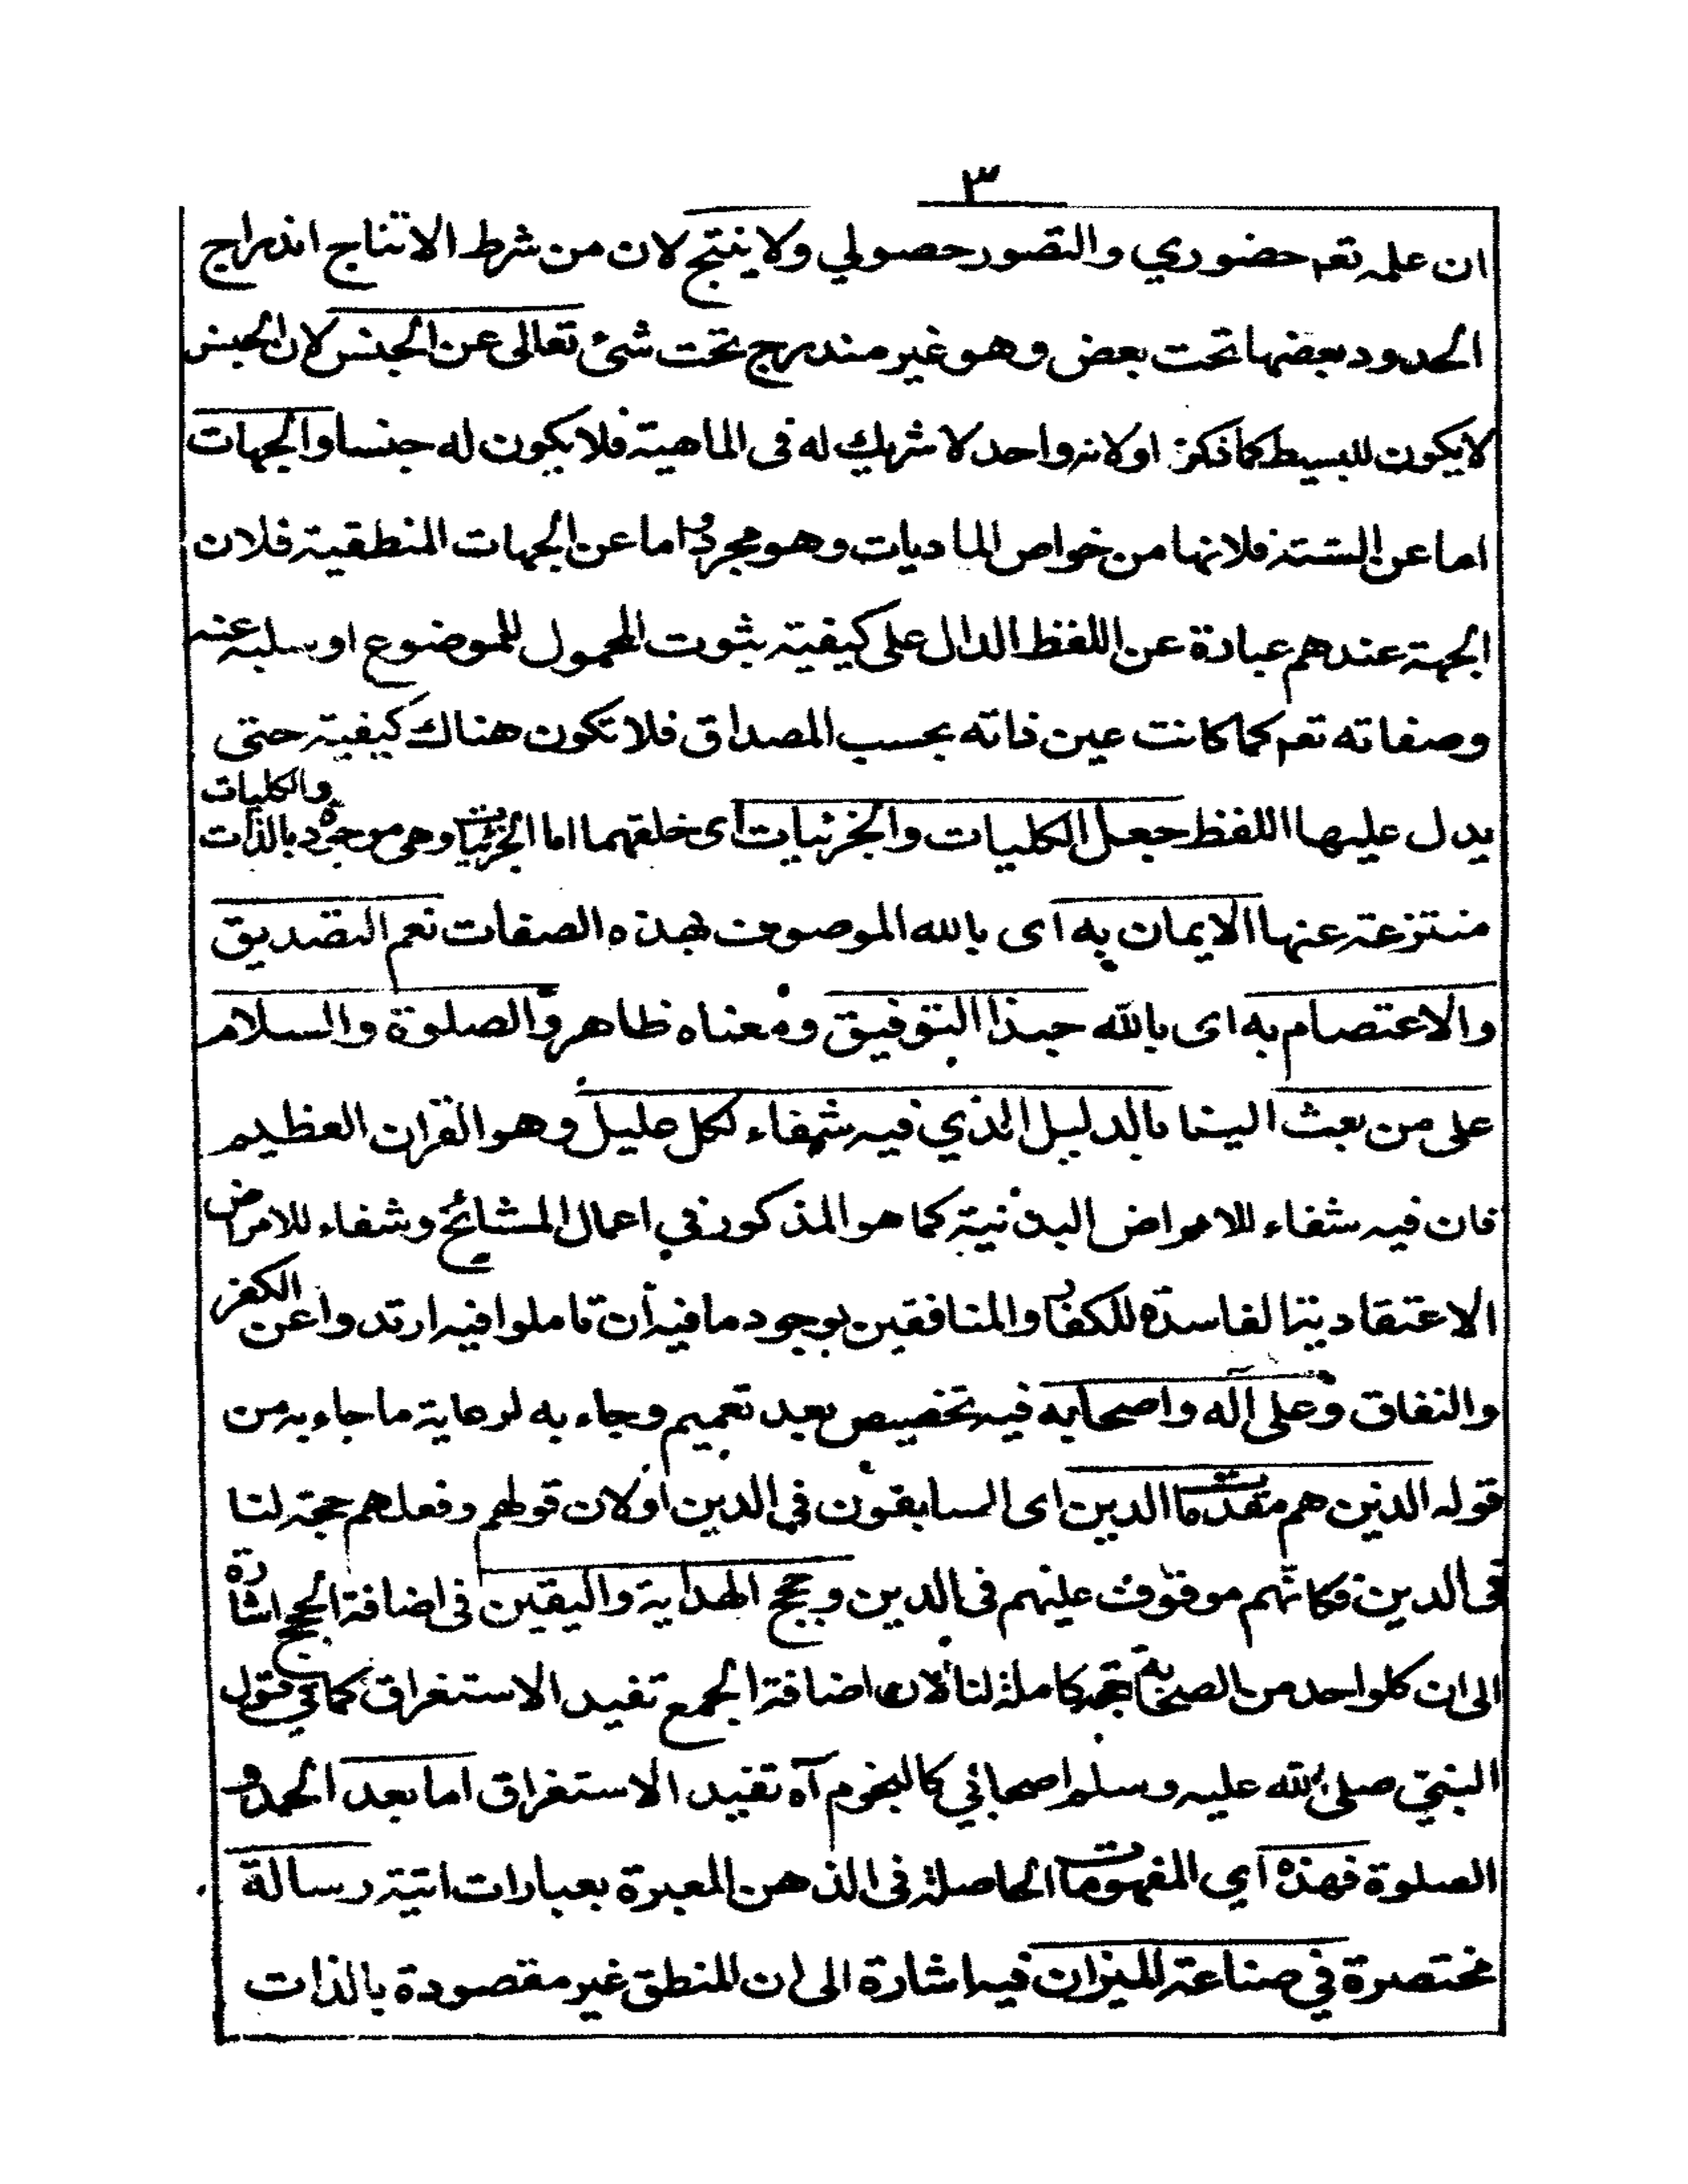 ٣
ان علمه تعم حضوري والتصور حصولي ولا ينتج لان من شرط الانتاج اندراج
الحدود بعضها تحت بعض وهو غير مندرج تحت شئ تعالى عن الجنس لان الجنس
لا يكون للبسيط كما ذكرنا او لانه واحد لا شريك له فى الماهية فلا يكون له جنسا والجهات
اما عن الستة فلانها من خواص الماديات وهو مجرد واما عن الجهات المنطقية فلان
الجهة عندهم عبارة عن اللفظ الدال على كيفية بثوت المحمول للموضوع او سلبه عنه
وصفاته تعم كما كانت عين ذاته بحسب المصداق فلا تكون هناك كيفية حتى
يدل عليها اللفظ جعل الكليات والجزئيات اى خلقهما اما الجزئيات وهى موجودة بالذات والكليات
منتزعة عنها الايمان به اى بالله الموصوف بهذه الصفات نعم التصديق
والاعتصام به اى بالله حبذا التوفيق ومعناه ظاهر والصلوة والسلام
على من بعث الينا بالدليل الذي فيه شفاء لكل عليل وهو القران العظيم
فان فيه شفاء للامراض البدنية كما هو المذكور في اعمال المشائخ وشفاء للامراض
الاعتقادية الفاسدة للكفار والمنافقين بوجود ما فيه ان تاملوا فيه ارتدوا عن الكفر
والنفاق وعلى آله واصحابه فيه تخصيص بعد تعميم وجاء به لرعاية ما جاء به من
قوله الذين هم مقدمات الدين اى السابقون في الدين او لان قولهم وفعلهم حجة لنا
فى الدين فكانهم موقوف عليهم فى الدين وحجج الهداية واليقين فى اضافة الحجج اشارة
الى ان كلواحد من الصحابة حجة كاملة لنا لان اضافة الجمع تفيد الاستغراق كما في قول
النبي صلى الله عليه وسلم اصحابي كالنجوم آه تفيد الاستغراق اما بعد الحمد و
الصلوة فهذه اي المفهومات الحاصلة فى الذهن المعبرة بعبارات اتية رسالة
مختصرة في صناعة الميزان فيه اشارة الى ان المنطق غير مقصودة بالذات